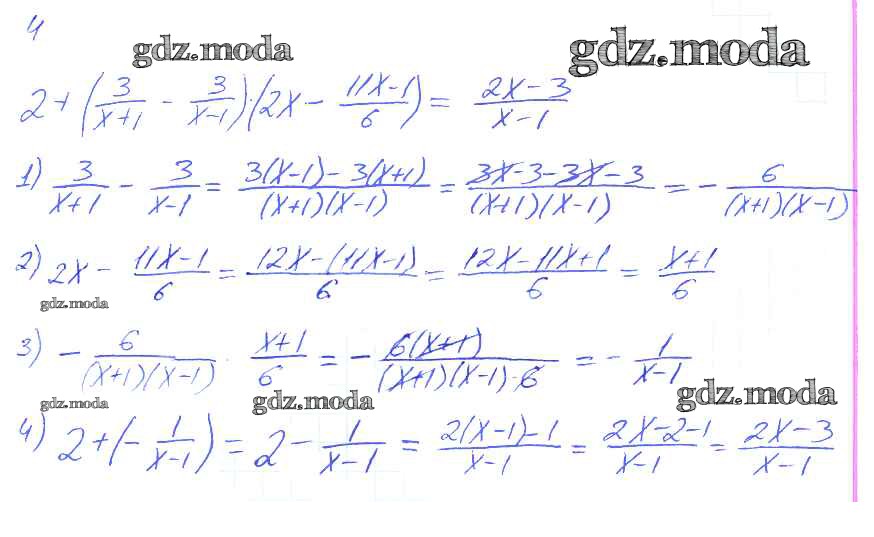 4
gdz.moda gdz.moda
2 + (3/(x+1) - 3/(x-1))·(2x - (11x-1)/6) = (2x-3)/(x-1)
1) 3/(x+1) - 3/(x-1) = (3(x-1)-3(x+1))/((x+1)(x-1)) = (3x-3-3x-3)/((x+1)(x-1)) = - 6/((x+1)(x-1))
2) 2x - (11x-1)/6 = (12x-(11x-1))/6 = (12x-11x+1)/6 = (x+1)/6
gdz.moda
3) - 6/((x+1)(x-1)) · (x+1)/6 = - 6(x+1)/((x+1)(x-1)·6) = - 1/(x-1)
gdz.moda gdz.moda gdz.moda
4) 2+(- 1/(x-1)) = 2 - 1/(x-1) = (2(x-1)-1)/(x-1) = (2x-2-1)/(x-1) = (2x-3)/(x-1)